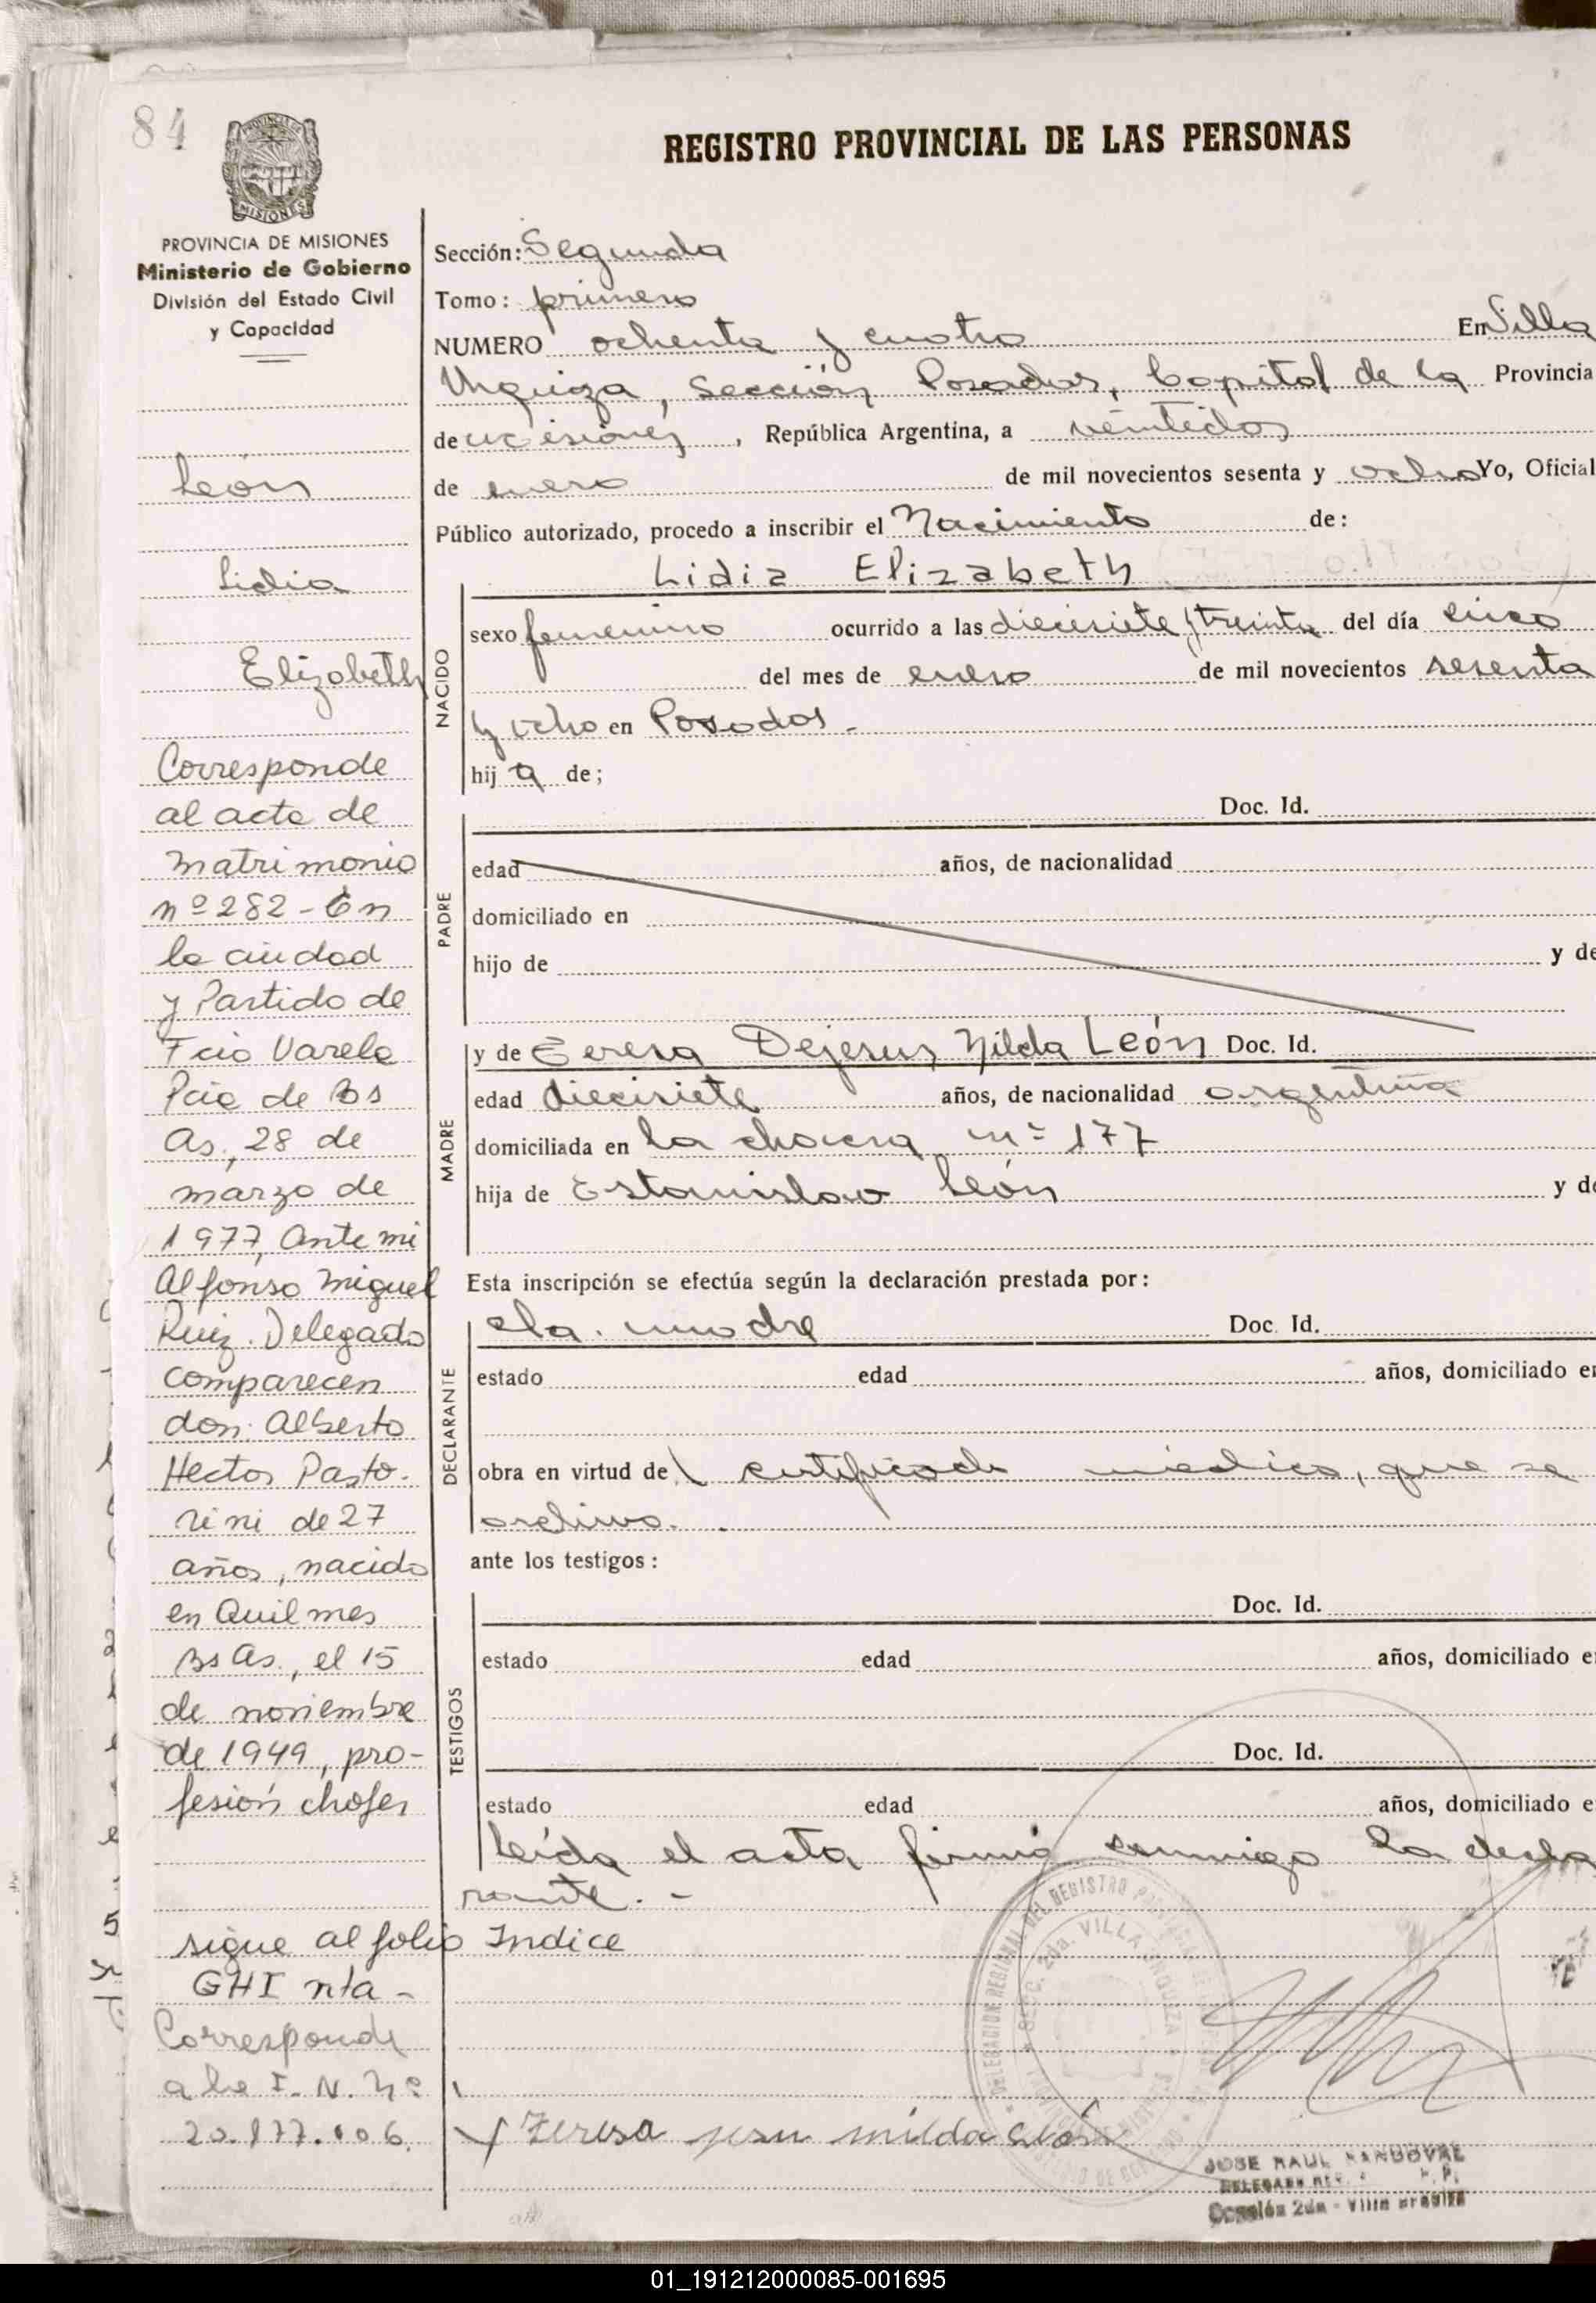 84
REGISTRO PROVINCIAL DE LAS PERSONAS
MISIONES
PROVINCIA DE MISIONES
Ministerio de Gobierno
División del Estado Civil
y Capacidad
León
Lidia
Elizabeth
Corresponde
al acta de
matrimonio
nº 282 - En
la ciudad
y Partido de
Fcio Varela
Pcia de Bs
As, 28 de
marzo de
1977, Ante mi
Alfonso Miguel
Ruiz. Delegado
comparecen
don: Alberto
Hector Pasto-
rini de 27
años, nacido
en Quilmes
Bs As., el 15
de noviembre
de 1949, pro-
fesión chofer
sigue al folio Indice
GHI nta -
Corresponde
a la I. N. Nº
20.177.006.
Sección: Segunda
Tomo: primero
NUMERO ochenta y cuatro En Villa
Urquiza, Sección Posadas, Capital de la Provincia
de Misiones, República Argentina, a veintidos
de enero de mil novecientos sesenta y ocho Yo, Oficial
Público autorizado, procedo a inscribir el Nacimiento de:
NACIDO
Lidia Elizabeth
sexo femenino ocurrido a las diecisiete y treinta del día cinco
del mes de enero de mil novecientos sesenta
y ocho en Posadas.-
hij a de;
PADRE
Doc. Id.
edad años, de nacionalidad
domiciliado en
hijo de y de
MADRE
y de Teresa Dejesus Nilda León Doc. Id.
edad diecisiete años, de nacionalidad argentina
domiciliada en la chacra nº 177
hija de Estanislao León y de
Esta inscripción se efectúa según la declaración prestada por:
DECLARANTE
la madre Doc. Id.
estado edad años, domiciliado en
obra en virtud de certificado médico, que se
archivo.
ante los testigos:
TESTIGOS
Doc. Id.
estado edad años, domiciliado en
Doc. Id.
estado edad años, domiciliado en
Leída el acta firma conmigo la decla
rante. -
DELEGACION REGIONAL DEL REGISTRO
SECC. 2da. VILLA URQUIZA
Teresa jesu nilda León
JOSE RAUL SANDOVAL
Sección 2da - Villa Urquiza
01_191212000085-001695